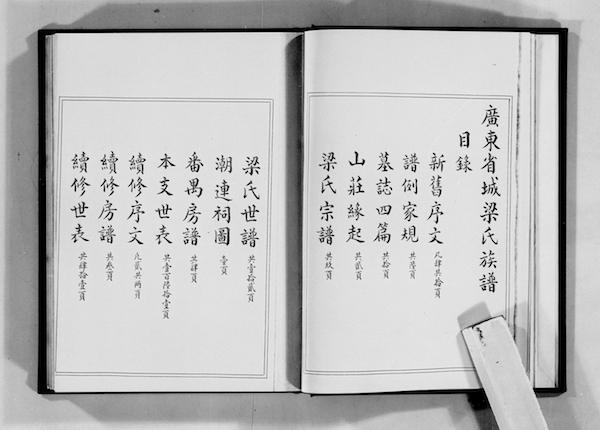 廣東省城梁氏族譜
目錄
新舊序文 凡肆共拾頁
譜例家規 共陸頁
墓誌四篇 共拾頁
山莊緣起 共貳頁
梁氏宗譜 共玖頁
梁氏世譜 共壹拾貳頁
潮連祠圖 壹頁
番禺房譜 共肆頁
本支世表 共壹百陸拾壹頁
續修序文 凡貳共兩頁
續修房譜 共叁頁
續修世表 共肆拾壹頁